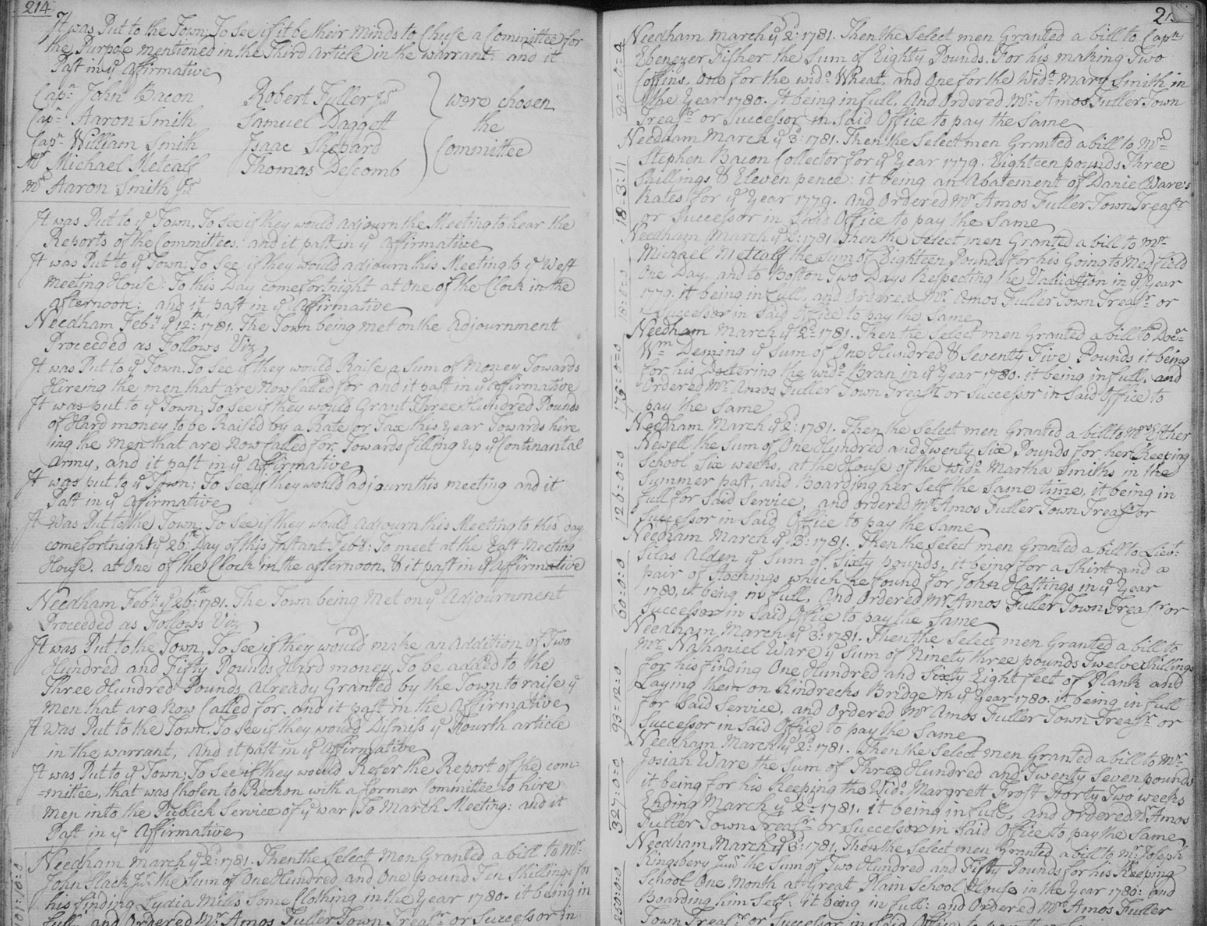 214
It was Put to the Town, To See if it be their minds to Chuse a Committee for
the Purpose mentioned in the Third Article in the warrant: and it
Past in yͤ Affirmative
Capᵗ: John Bacon
Capᵗ: Aaron Smith
Capᵗ William Smith
Mʳ Michael Metcalf
Mʳ Aaron Smith Jʳ
Robert Fuller Jʳ
Samuel Daggett
Isaac Shepard
Thomas Discomb
were chosen
the
Committee
It was Put to yͤ Town, To See if they would Adjourn the Meeting to hear the
Reports of the Committees: and it past in yͤ Affirmative
It was Put to yͤ Town: To See if they would adjourn this Meeting to yͤ West
meeting House: To this Day come fortnight at One of the Clock in the
afternoon: and it past in yͤ Affirmative
Needham Febʸ yͤ 12ᵗʰ: 1781. The Town being met on the Adjournment
Proceeded as Follows Viz
It was Put to yͤ Town, To See if they would Raise a Sum of Money Towards
Hireing the men that are Now Called for and it past in yͤ affirmative
It was put to yͤ Town, To See if they would Grant Three Hundred Pounds
of Hard money to be Raised by a Rate or Tax this Year Towards hire
ing the Men that are Now Called for, Towards filling up yͤ Continantal
Army, and it past in yͤ Affirmative
It was put to yͤ Town; To See if they would adjourn this meeting and it
Past in yͤ Affirmative
It was Put to the Town, To See if they would Adjourn this Meeting to this day
come fortnight yͤ 26ᵗʰ Day of this Instant Febʸ: To meet at the East Meeting
House, at One of the Clock in the afternoon, & it past in yͤ Affirmative
Needham Febʸ yͤ 26ᵗʰ 1781. The Town being Met on yͤ Adjournment
Proceeded as Follows Viz
It was Put to the Town, To See if they would make an Addition of Two
Hundred and Fifty Pounds Hard money, To be added to the
Three Hundred Pounds Already Granted by the Town to raise yͤ
men that are Now Called for, and it past in the Affirmative
It Was Put to the Town, To See if they would Dismiss yͤ Fourth article
in the warrant, And it past in yͤ affirmative
It was Put to yͤ Town, To See if they would Refer the Report of the com-
=mittee, that was Chosen to Reckon with a former Committee to hire
men into the Publick Service of yͤ war To March Meeting: and it
Past in yͤ Affirmative
101:10:0
Needham march yͤ 2: 1781. Then the Select men Granted a bill to Mʳ
John Slack Jʳ the Sum of One Hundred and One pound Ten Shillings for
his finding Lydia Mills Some Clothing in the Year 1780. it being in
full, and Ordered Mʳ Amos Fuller Town Treasʳ or Successor in
80=0=0
Needham march yͤ 2: 1781. Then the Select men Granted a bill to Capᵗ
Ebenezer Fisher the Sum of Eighty Pounds. For his making Two
Coffins, One for the widᵒ Wheat, and One for the Widᵒ Mary Smith in
the Year 1780. It being in full, And Ordered Mʳ Amos Fuller Town
Treasʳ or Successor in Said Office to pay the Same
18=3:11
Needham March yͤ 3: 1781. Then the Select men Granted a bill to Mʳ
Stephen Bacon Collector for yͤ Year 1779. Eighteen pounds Three
Shillings & Eleven pence: it being an Abatement of Daniel Ware's
Rates for yͤ Year 1779. And Ordered Mʳ Amos Fuller Town Treasʳ
or Successor in Said Office to pay the Same
18:0:0
Needham March yͤ 2: 1781. Then the Select men Granted a bill to Mʳ
Michael Metcalf the Sum of Eighteen Pounds for his Going to Medfield
One Day, and to Boston Two Days Respecting the Valication in yͤ Year
1779. it being in full, and Ordered Mʳ Amos Fuller Town Treasʳ or
Successor in Said Office to pay the Same
175=0=0
Needham March yͤ 2: 1781. Then the Select men Granted a bill to Docʳ
Wᵐ Deming yͤ Sum of One Hundred & Seventy Five Pounds it being
for his Doctering the widᵒ Bran in yͤ Year 1780. it being in full, and
Ordered Mʳ Amos Fuller Town Treasʳ or Successor in Said Office to
pay the Same
126:0:0
Needham March yͤ 2: 1781. Then the Select men Granted a bill to Mʳˢ Esther
Rewell the Sum of One Hundred and Twenty Six Pounds for her Keeping
School Six weeks, at the House of the widᵒ Martha Smiths in the
Summer past, and Boarding her Self the Same time, it being in
full for Said Service, and ordered Mʳ Amos Fuller Town Treasʳ or
Successor in Said Office to pay the Same
60:0:0
Needham March yͤ 3: 1781. Then the Select men Granted a bill to Lieuᵗ
Silas Alden yͤ Sum of Sixty pounds, it being for a Shirt and a
pair of Stockings which he found for John Hastings in yͤ year
1780, it being in full, And Ordered Mʳ Amos Fuller Town Treasʳ or
Successor in Said Office to pay the Same
93=12=0
Needham March yͤ 3: 1781. Then the Select men Granted a bill to
Mʳ Nathaniel Ware yͤ Sum of Ninety three pounds Twelve Shillings
for his finding One Hundred and Sixty Eight feet of Plank and
Laying them on Kindrecks Bridge in yͤ Year 1780. it being in full
for Said Service, and Ordered Mʳ Amos Fuller Town Treasʳ or
Successor in Said Office to pay the Same
327:0:0
Needham March yͤ 2: 1781. Then the Select men Granted a bill to Mʳ
Josiah Ware the Sum of Three Hundred and Twenty Seven pounds
it being for his Keeping the Widᵒ Margrett Frost Forty Two weeks
Ending March yͤ 2: 1781. it being in full, and Ordered Mʳ Amos
Fuller Town Treasʳ or Successor in Said Office to pay the Same
250:0:0
Needham March yͤ 3: 1781. Then the Select men Granted a bill to Mʳ Joseph
Kingsbery Junʳ the Sum of Two Hundred and Fifty Pounds for his Keeping
School One Month at Great Plain School House in the Year 1780: and
Boarding him Self, it being in full: and Ordered Mʳ Amos Fuller
Town Treasʳ or Successor in Said Office to pay